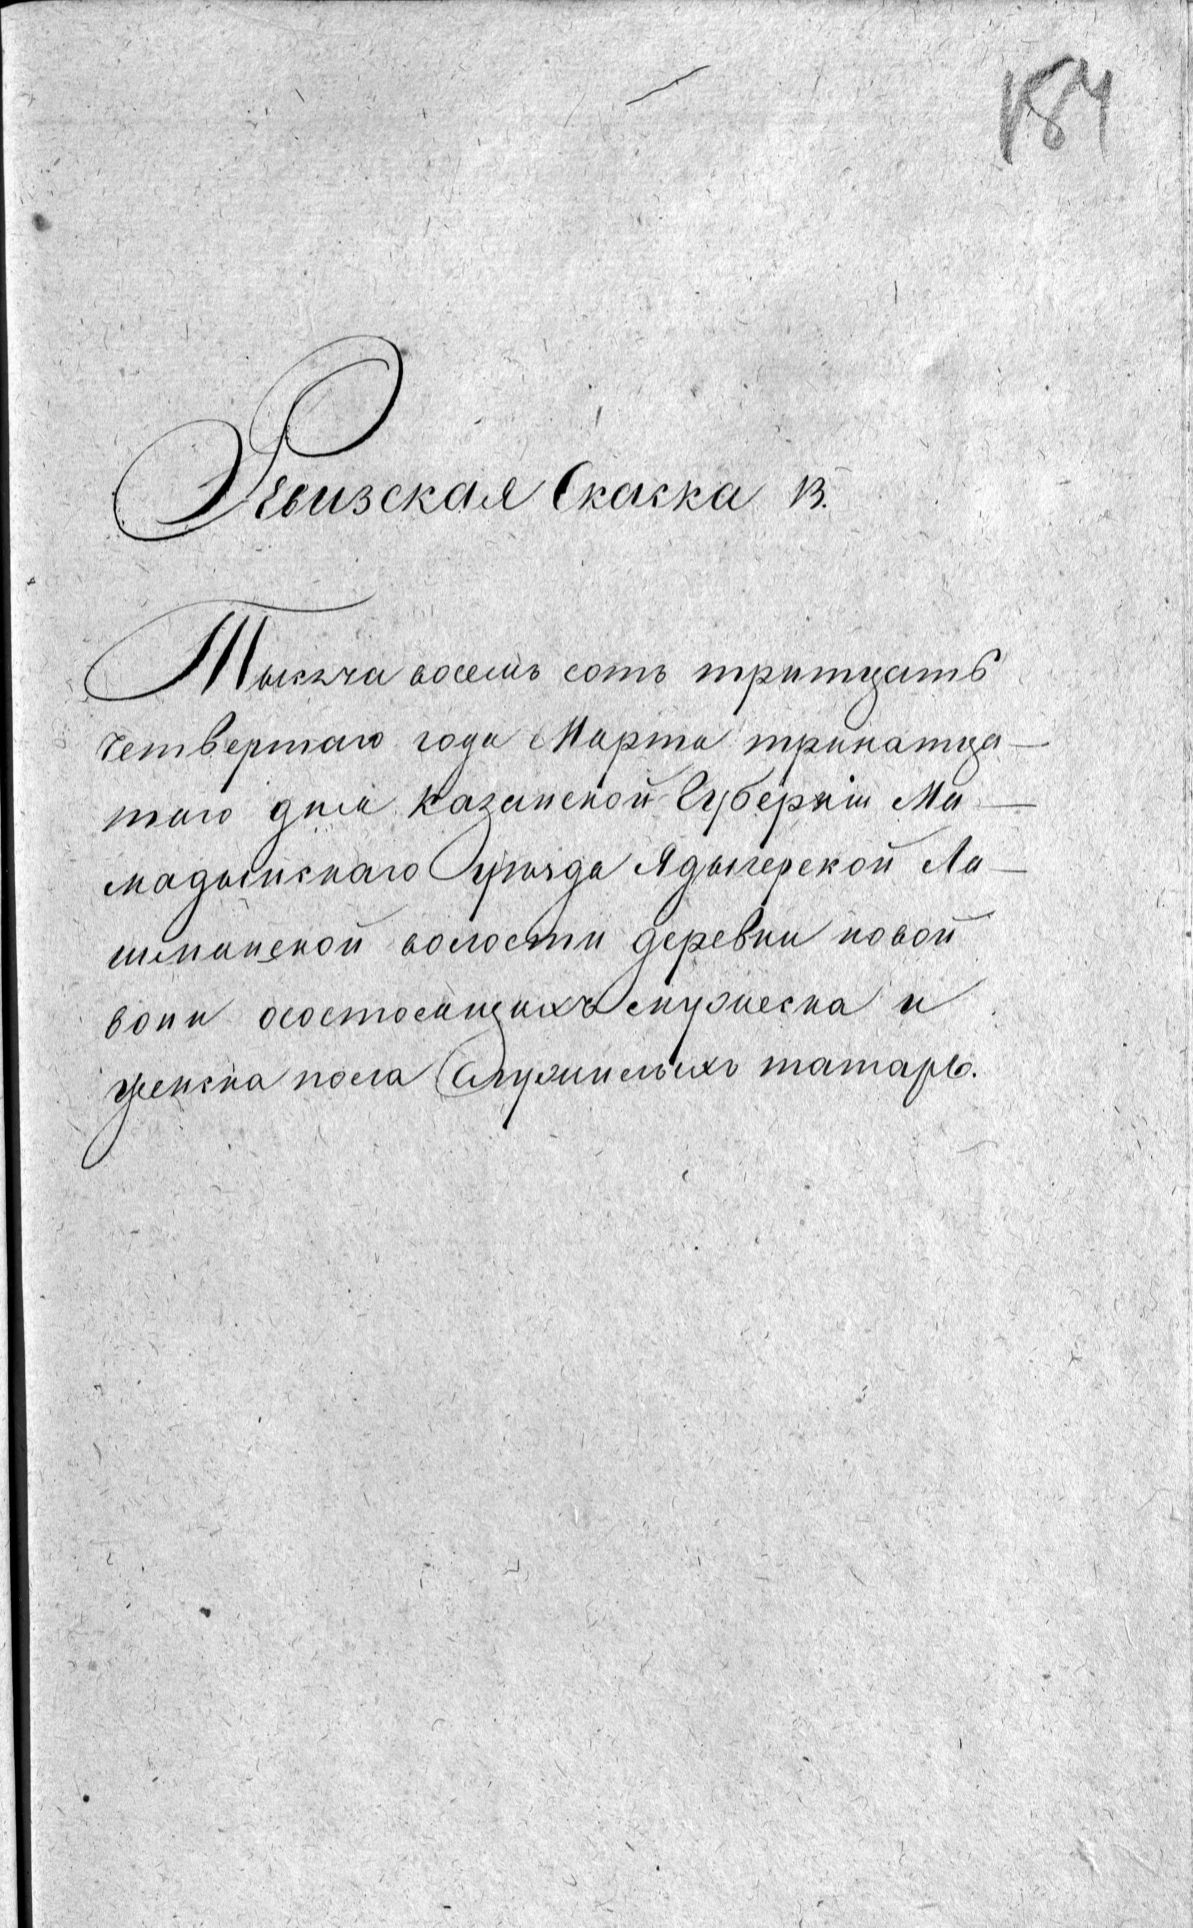 184
Ревизская Скаска 13.
Тысяча восемь сотъ тритцать
четвертаго года Марта тринатца-
таго дня Казанской Губерніи Ма-
мадышскаго Уѣзда Ядыгерской Ла-
шманской волости деревни новой
вони осостоящихъ мужеска и
женска пола Служилыхъ татаръ.